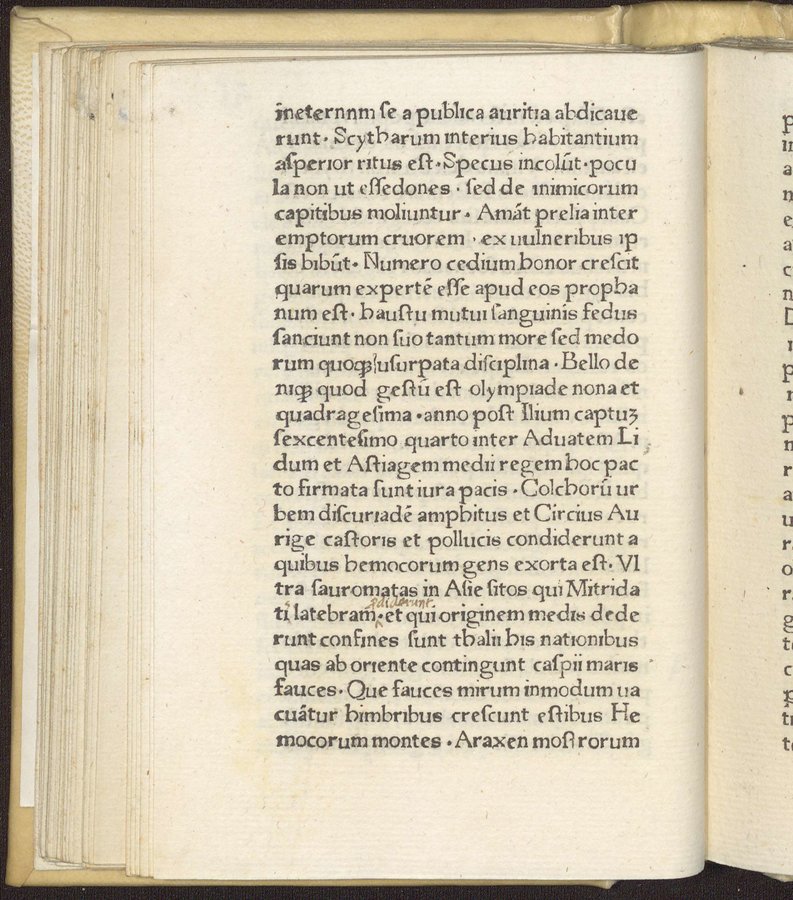 īneternnm se a publica auritia abdicaue
runt. Scytharum interius habitantium
aſperior ritus eſt. Specus incolūt. pocu
la non ut eſſedones. ſed de inimicorum
capitibus moliuntur. Amāt prelia inter
emptorum cruorem, ex uulneribus ip
ſis bibūt. Numero cedium honor creſcit
quarum expertē eſſe apud eos propha
num eſt. hauſtu mutui ſanguinis fedus
ſanciunt non ſuo tantum more ſed medo
rum quoqꝫ uſurpata diſciplina. Bello de
niqꝫ quod geſtū eſt olympiade nona et
quadrageſima. anno poſt Ilium captuꝫ
ſexcenteſimo quarto inter Aduatem Li
dum et Aſtiagem medii regem hoc pac
to firmata ſunt iura pacis. Colchorū ur
bem diſcuriadē amphitus et Circius Au
rige caſtoris et pollucis condiderunt a
quibus hemocorum gens exorta eſt. Vl
tra ſauromatas in Aſie ſitos qui Mitrida
diderunt
ti latebram. et qui originem medis dede
runt confines ſunt thalii his nationibus
quas ab oriente contingunt caſpii maris
fauces. Que fauces mirum inmodum ua
cuātur himbribus creſcunt eſtibus He
mocorum montes. Araxen moſrorum